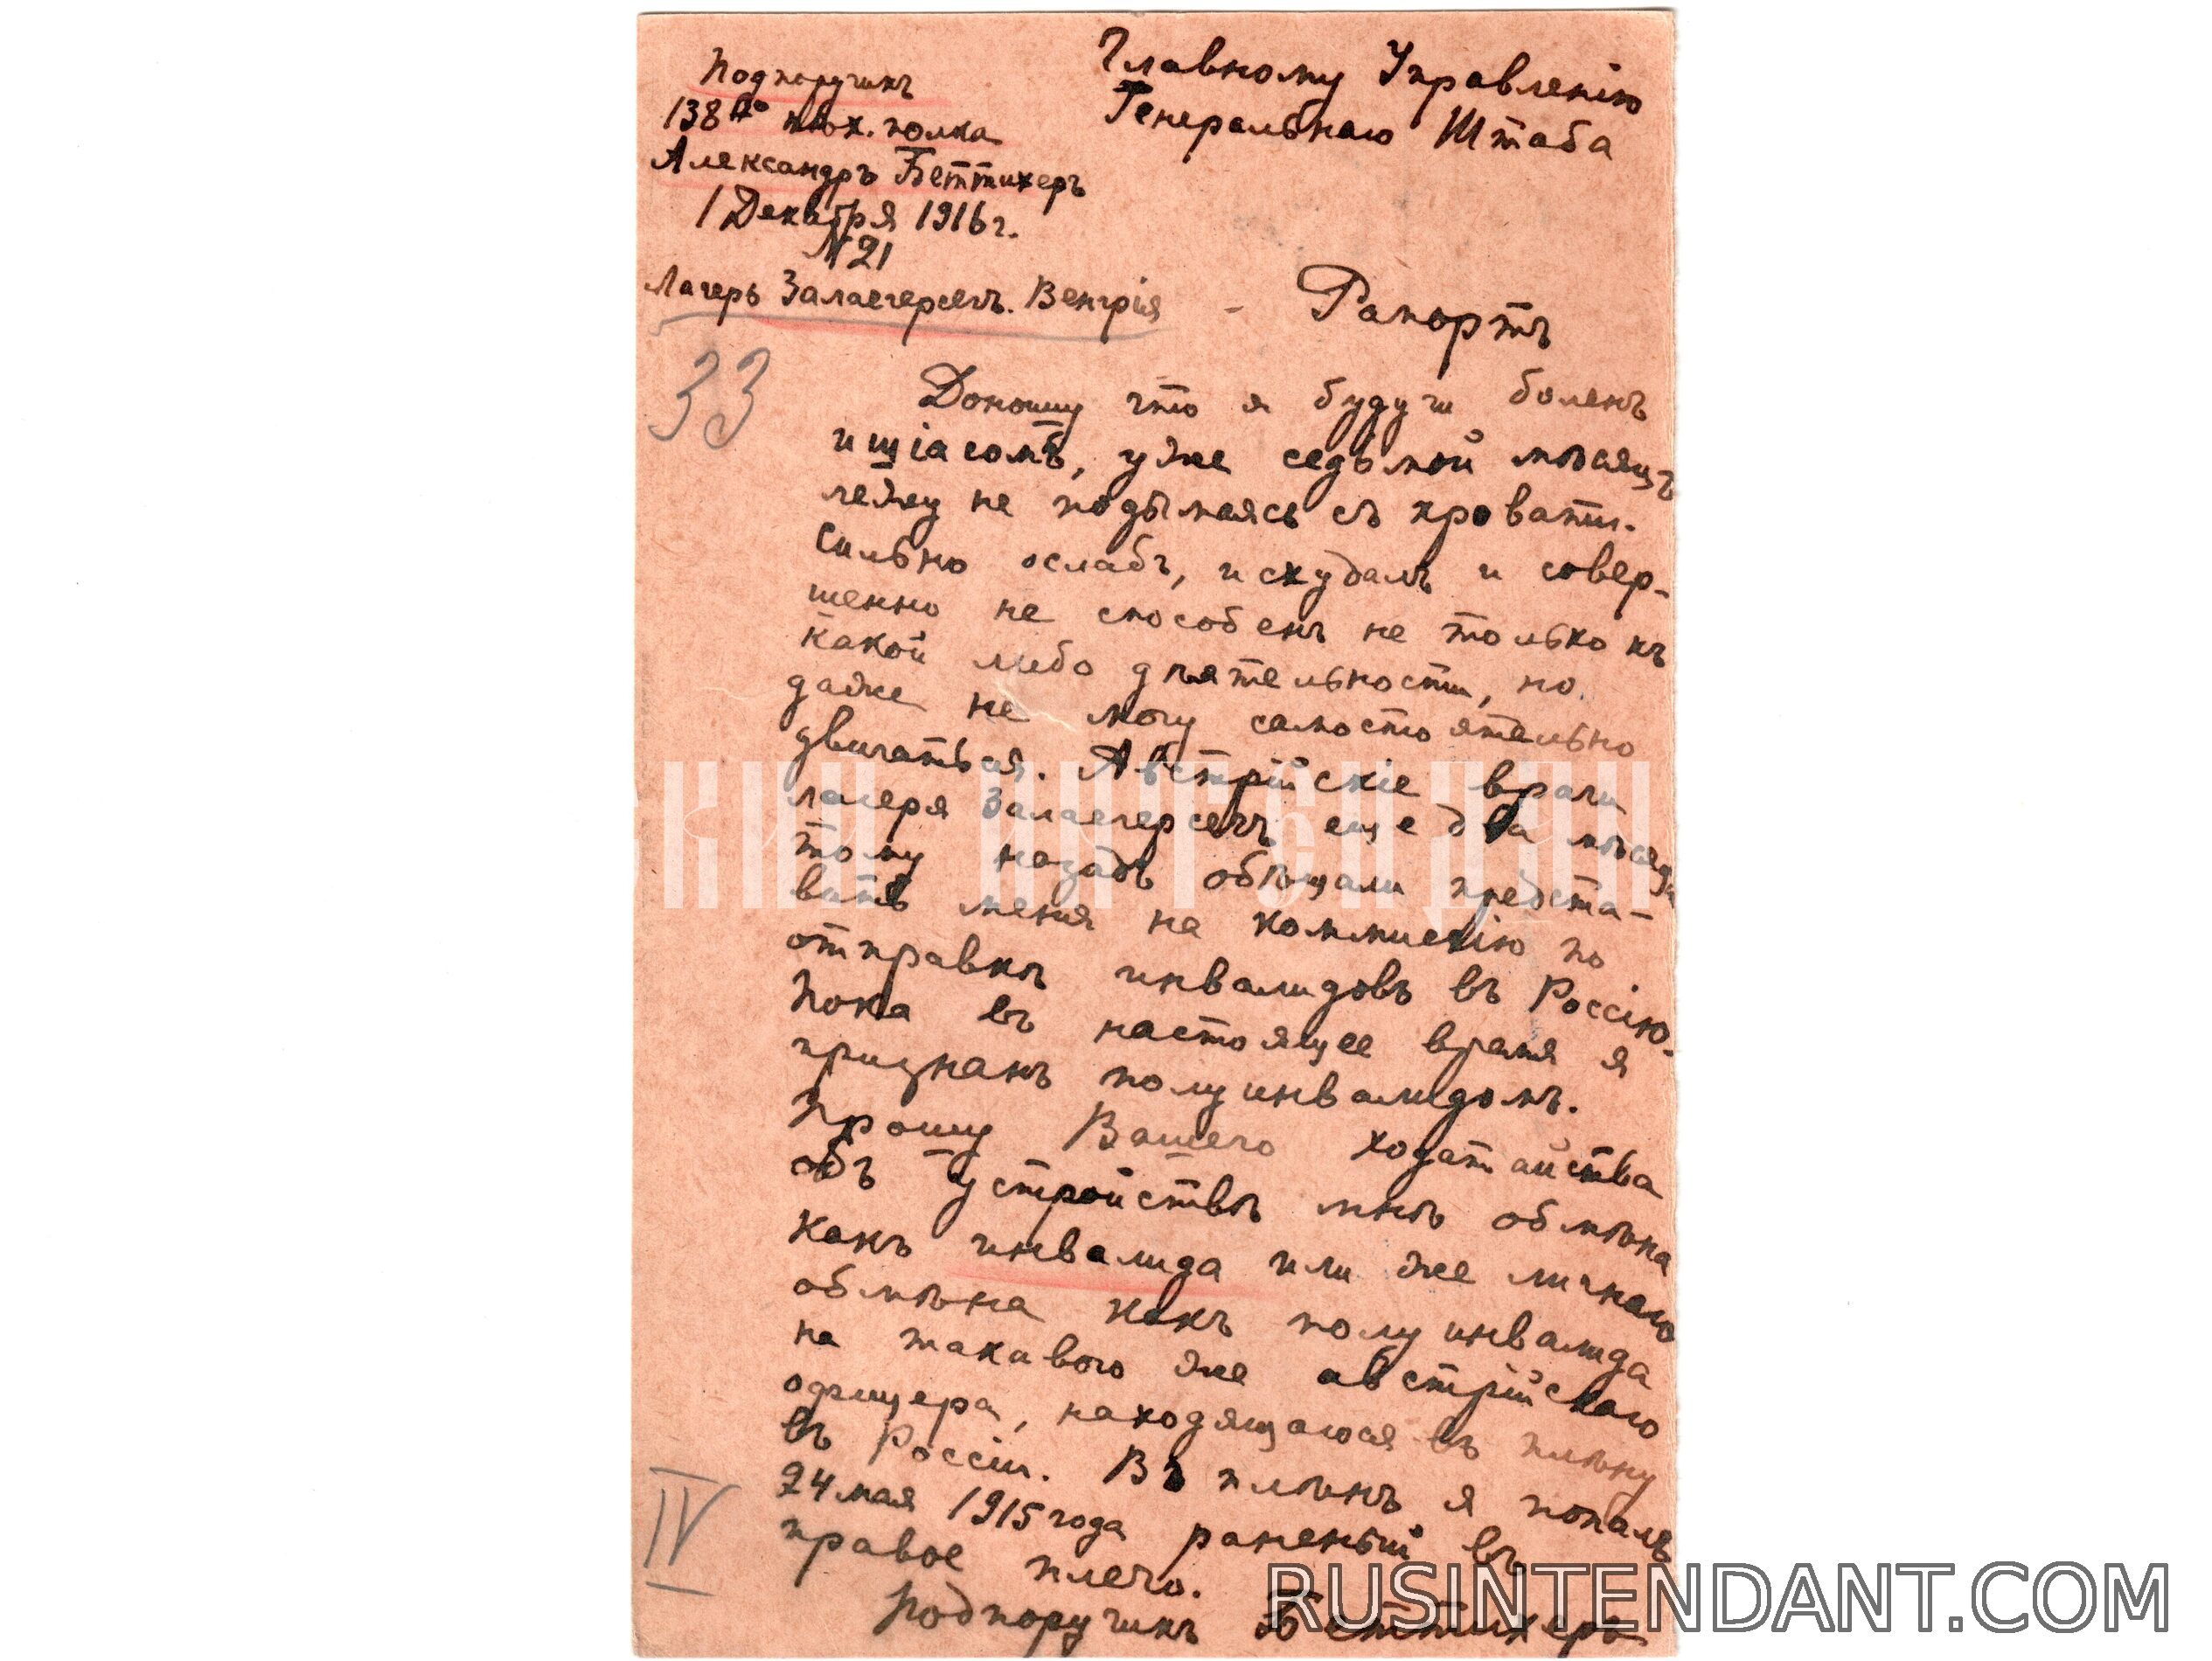 Подпоручикъ
138го пѣх. полка
Александръ Беттихеръ
1 Декабря 1916 г.
№ 21
Лагерь Залаегерсегъ. Венгрія
Главному Управленію
Генеральнаго Штаба
Рапортъ
33
Доношу что я будучи боленъ
ишіасомъ, уже седьмой мѣсяцъ
лежу не подымаясь съ кровати.
Сильно ослабъ, исхудалъ и совер-
шенно не способенъ не только къ
какой либо дѣятельности, но
даже не могу самостоятельно
двигаться. Австрійскіе врачи
лагеря Залаегерсегъ еще два мѣсяца
тому назадъ обѣщали предста-
вить меня на коммисію по
отправкѣ инвалидовъ въ Россію.
Пока въ настоящее время я
признанъ полуинвалидомъ.
Прошу Вашего ходатайства
объ устройствѣ мнѣ обмѣна
какъ инвалида или же личнаго
обмѣна какъ полуинвалида
на такового же австрійскаго
офицера, находящагося въ плѣну
въ Россіи. Въ плѣнъ я попалъ
24 мая 1915 года раненый въ
правое плечо.
Подпоручикъ Беттихеръ
IV
RUSINTENDANT.COM